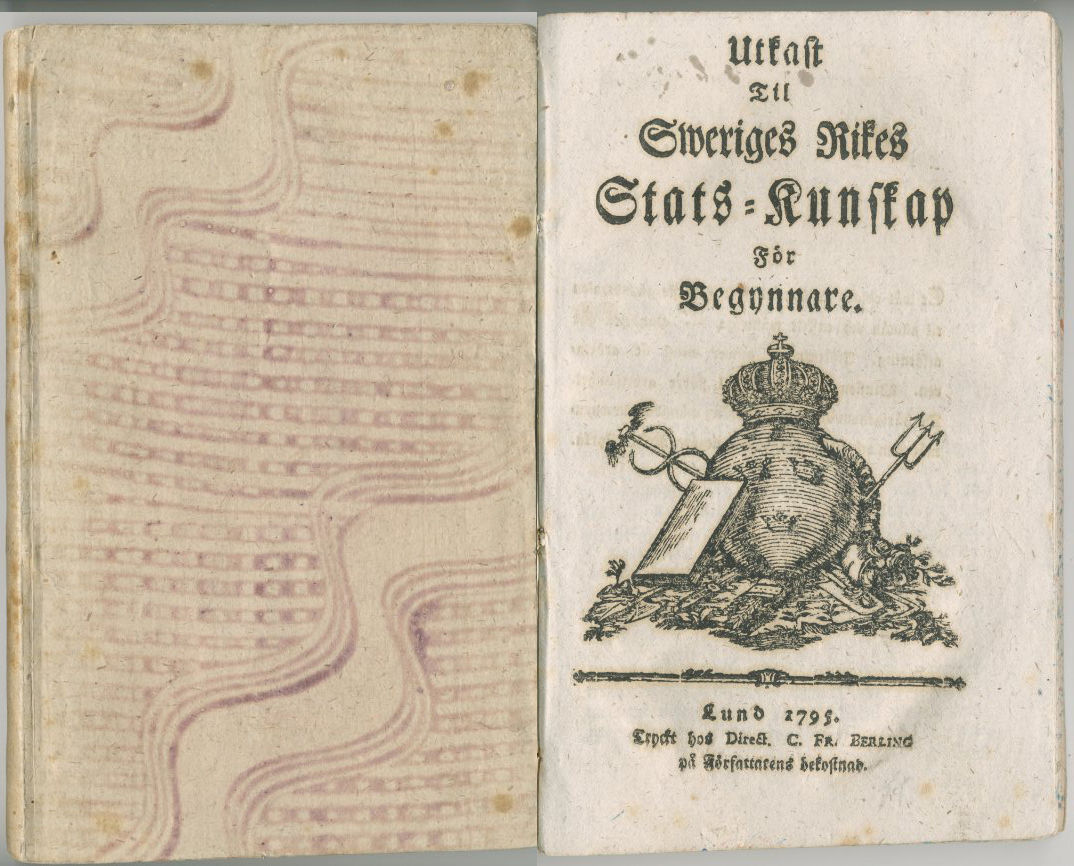 Utkast
Til
Sweriges Rikes
Stats-Kunskap
För
Begynnare.
Lund 1795.
Tryckt hos Direct. C. Fr. Berling
på Författarens bekostnad.